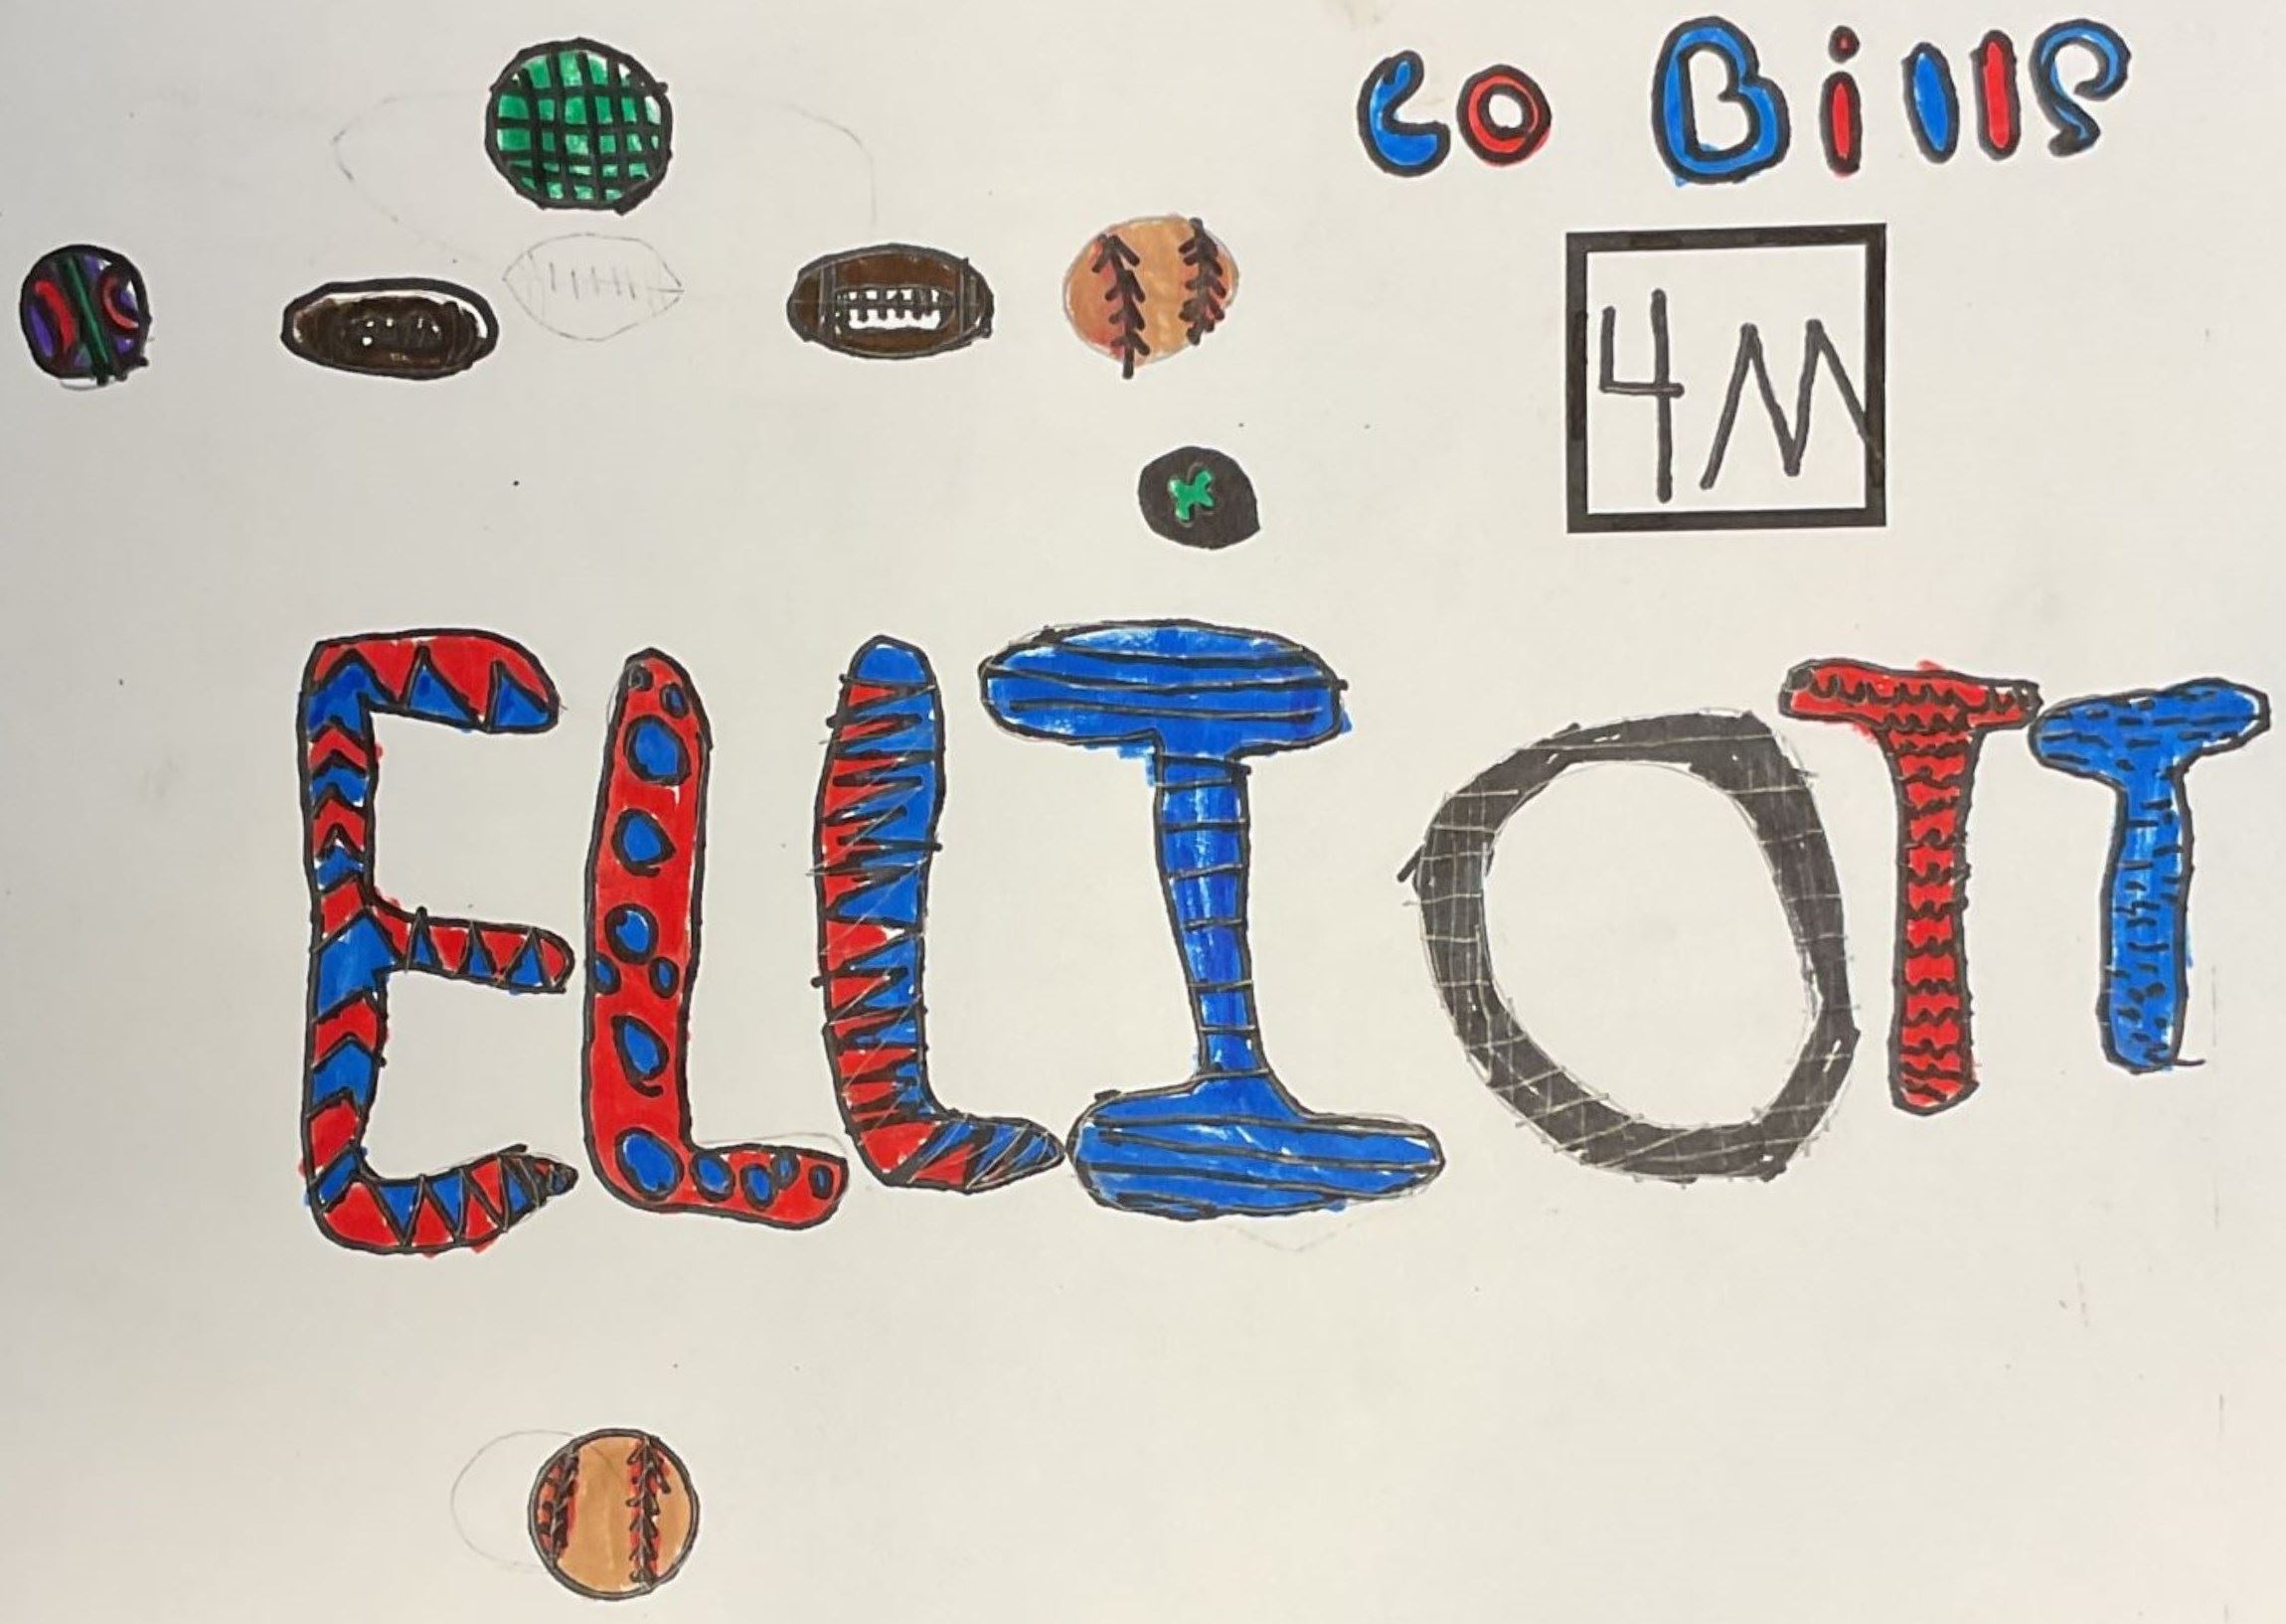 Go Bills
4M
ELLIOTT